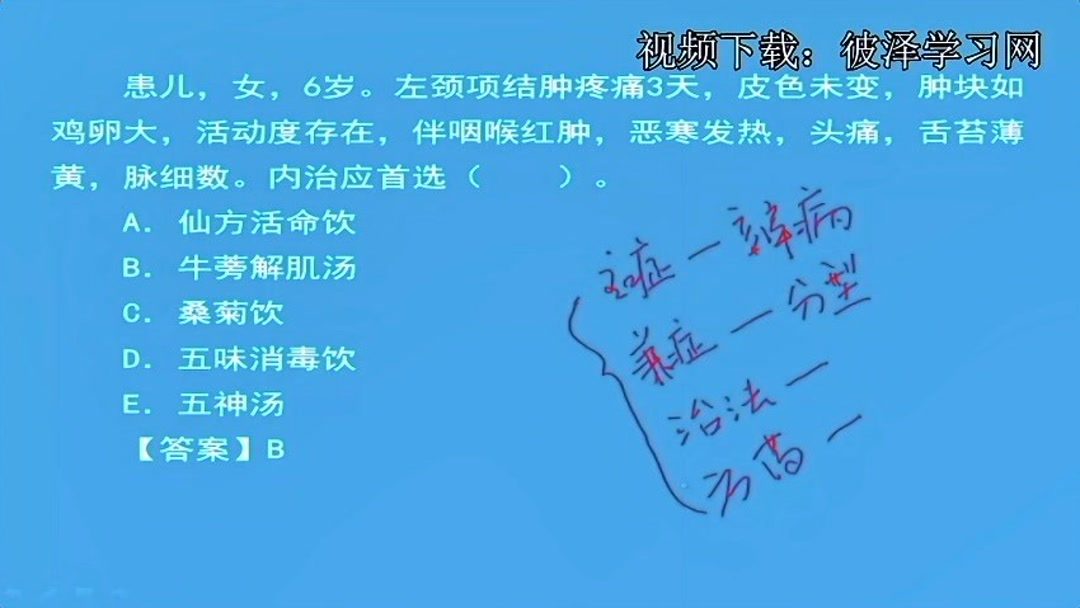 视频下载：彼泽学习网
患儿，女，6岁。左颈项结肿疼痛3天，皮色未变，肿块如
鸡卵大，活动度存在，伴咽喉红肿，恶寒发热，头痛，舌苔薄
黄，脉细数。内治应首选（　　）。
A．仙方活命饮
B．牛蒡解肌汤
C．桑菊饮
D．五味消毒饮
E．五神汤
【答案】B
主症一辨病
兼症一分型
治法一
方药一